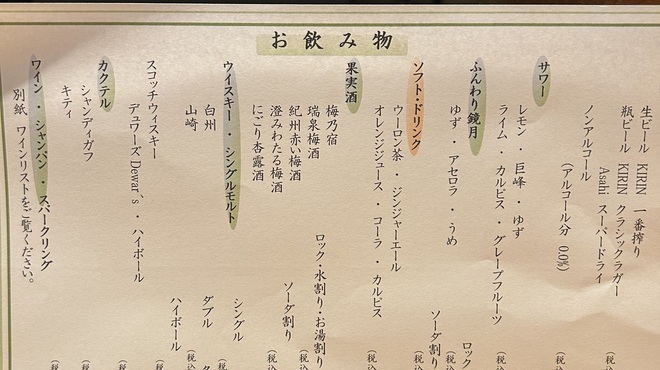 お飲み物
生ビール KIRIN 一番搾り
瓶ビール KIRIN クラシックラガー
Asahi スーパードライ
ノンアルコール
(アルコール分 0.0%)
サワー
レモン ・ 巨峰 ・ ゆず
ライム ・ カルピス ・ グレープフルーツ
ふんわり鏡月
ゆず ・ アセロラ ・ うめ
ロック
ソーダ割り
ソフト・ドリンク
ウーロン茶 ・ ジンジャーエール
オレンジジュース ・ コーラ ・ カルピス
果実酒
梅乃宿
瑞泉梅酒
紀州赤い梅酒
澄みわたる梅酒
にごり杏露酒
ロック・水割り・お湯割り
ソーダ割り
ウイスキー ・ シングルモルト
白州
山崎
シングル
ダブル
ハイボール
スコッチウィスキー
デュワーズ Dewar's ・ ハイボール
カクテル
シャンディガフ
キティ
ワイン ・ シャンパン ・ スパークリング
別紙 ワインリストをご覧ください。